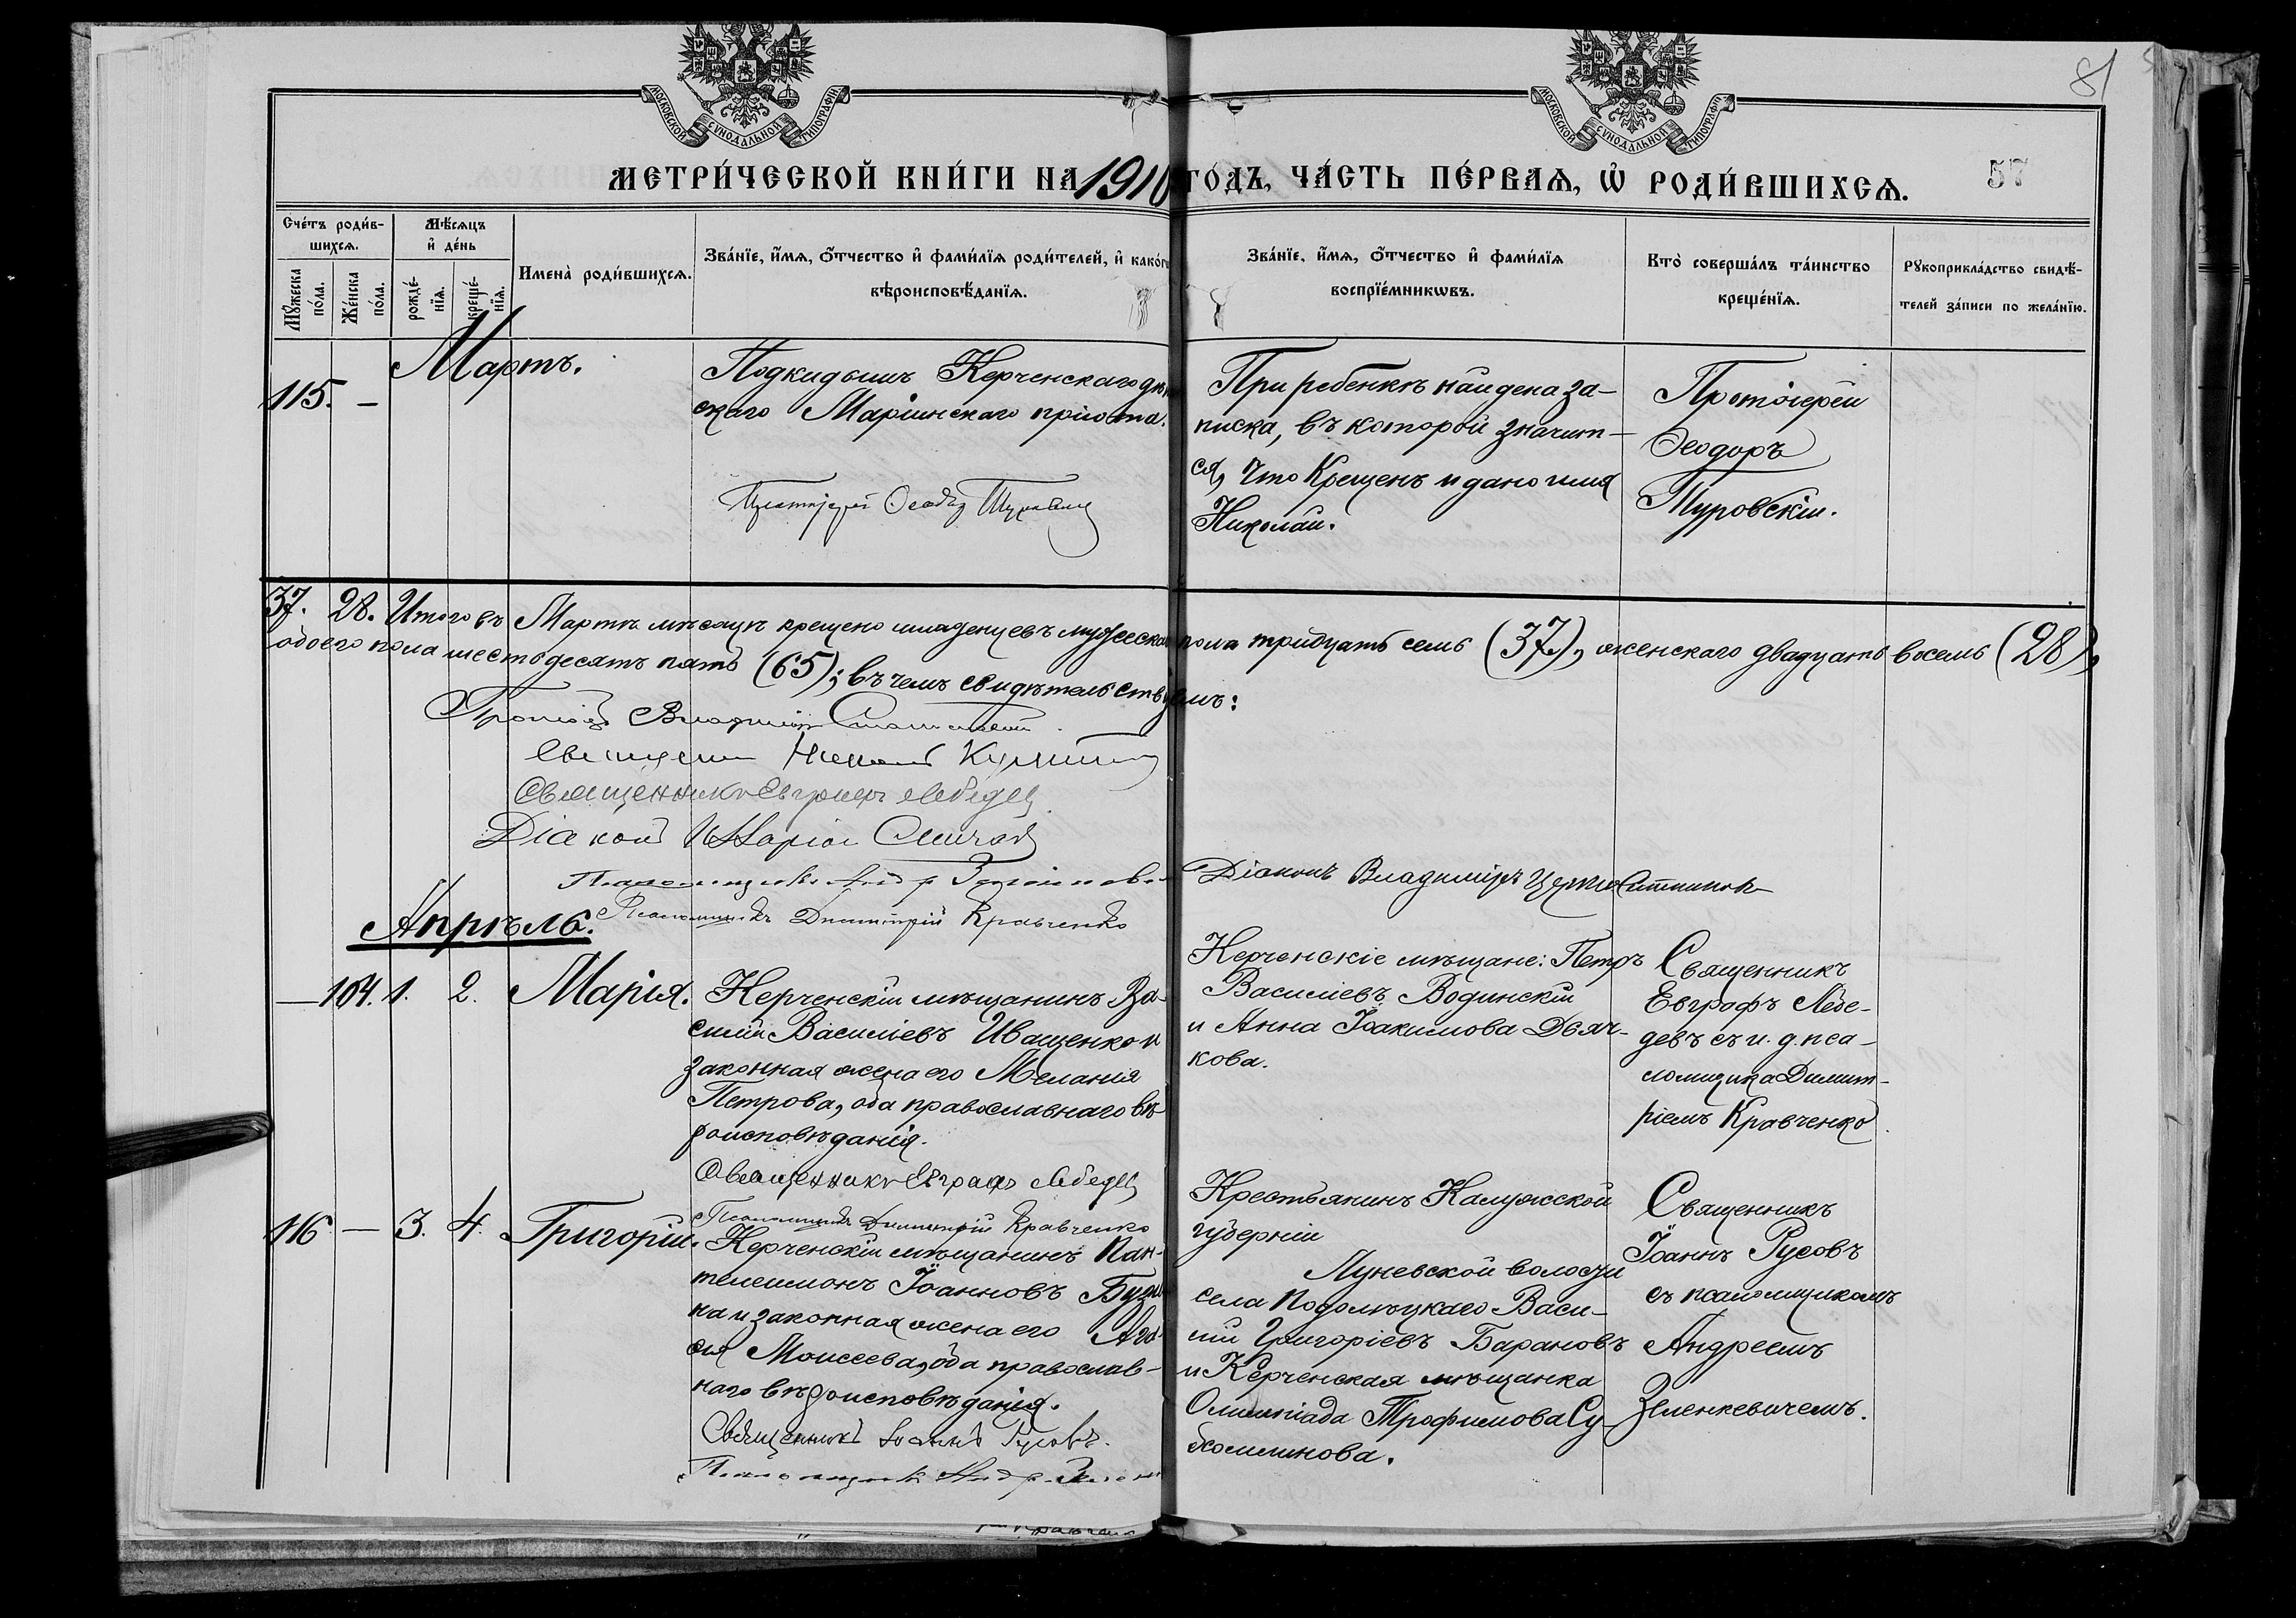 МОСКОВСКОЙ СѴНОДАЛЬНОЙ ТИПОГРАФІИ
МОСКОВСКОЙ СѴНОДАЛЬНОЙ ТИПОГРАФІИ
81
МЕТРИ́ЧЕСКОЙ КНИ́ГИ НА 1910 ГО́ДЪ, ЧА́СТЬ ПЕ́РВАѦ, Ѡ҆ РОДИ́ВШИХСѦ.
57
Сче́тъ роди́в-
шихсѧ.
Мꙋ́жеска по́ла.
Же́нска по́ла.
Мѣ́сѧцъ
и҆ де́нь
рожде́-
нїѧ.
креще́-
нїѧ.
Имена̀ роди́вшихсѧ.
Зва́нїе, и҆́мѧ, ѻ҆́тчество и҆ фами́лїѧ роди́телей, и҆ како́гѡ
вѣроисповѣ́данїѧ.
Зва́нїе, и҆́мѧ, ѻ҆́тчество и҆ фами́лїѧ
воспрїе́мникѡвъ.
Кто̀ соверша́лъ та́инство
креще́нїѧ.
Рꙋкоприкла́дство свидѣ́-
телей за́писи по жела́нїю.
Мартъ.
115. —
Подкидышъ Керченскаго дѣт
скаго Маріинскаго пріюта.
Протоіерей Ѳеодоръ
При ребенкѣ найдена за-
писка, въ которой значит-
ся, что Крещенъ и дано имя
Николай.
Протоіерей
Ѳеодоръ
37. 28. Итого въ Мартѣ мѣсяцѣ крещено младенцевъ мужескаго пола тридцать семь (37), женскаго двадцать восемь (28),
обоего пола шестьдесятъ пять (65); въ чемъ свидѣтельствуемъ:
Священникъ Николай
Священникъ Евграфъ Лебедев
Діаконъ Иларіон
Псаломщикъ Андр
Діаконъ Владимiръ
Псаломщикъ Димитрій Кравченко
Апрѣль.
— 104. 1. 2. Марія.
Керченскій мѣщанинъ Ва-
силій Василіевъ Иващенко и
законная жена его Мелания
Петрова, оба православнаго вѣ-
роисповѣданія.
Священникъ Евграфъ Лебедев
Псаломщикъ Димитрій Кравченко
Керченскіе мѣщане: Петръ
Василіевъ Водинскій
и Анна Іоакимова Дьяч-
кова.
Священникъ
Евграфъ Лебе-
девъ съ и. д. пса-
ломщика Димит-
ріемъ Кравченко
116 — 3. 4. Григорій.
Керченскій мѣщанинъ Пан-
телеимонъ Іоанновъ
на и законная жена его
Моисеева, оба православ-
наго вѣроисповѣданія.
Священникъ Іоаннъ Русовъ.
Псаломщикъ Андр.
Крестьянинъ Калужской
губерніи
Луневской волости
села Подолѣцкаго Васи-
лій Григоріевъ Барановъ
и Керченская мѣщанка
Олимпіада Трофимова Су-
хомлинова.
Священникъ
Іоаннъ Русовъ
съ псаломщикомъ
Андреемъ
Зеленкевичемъ.